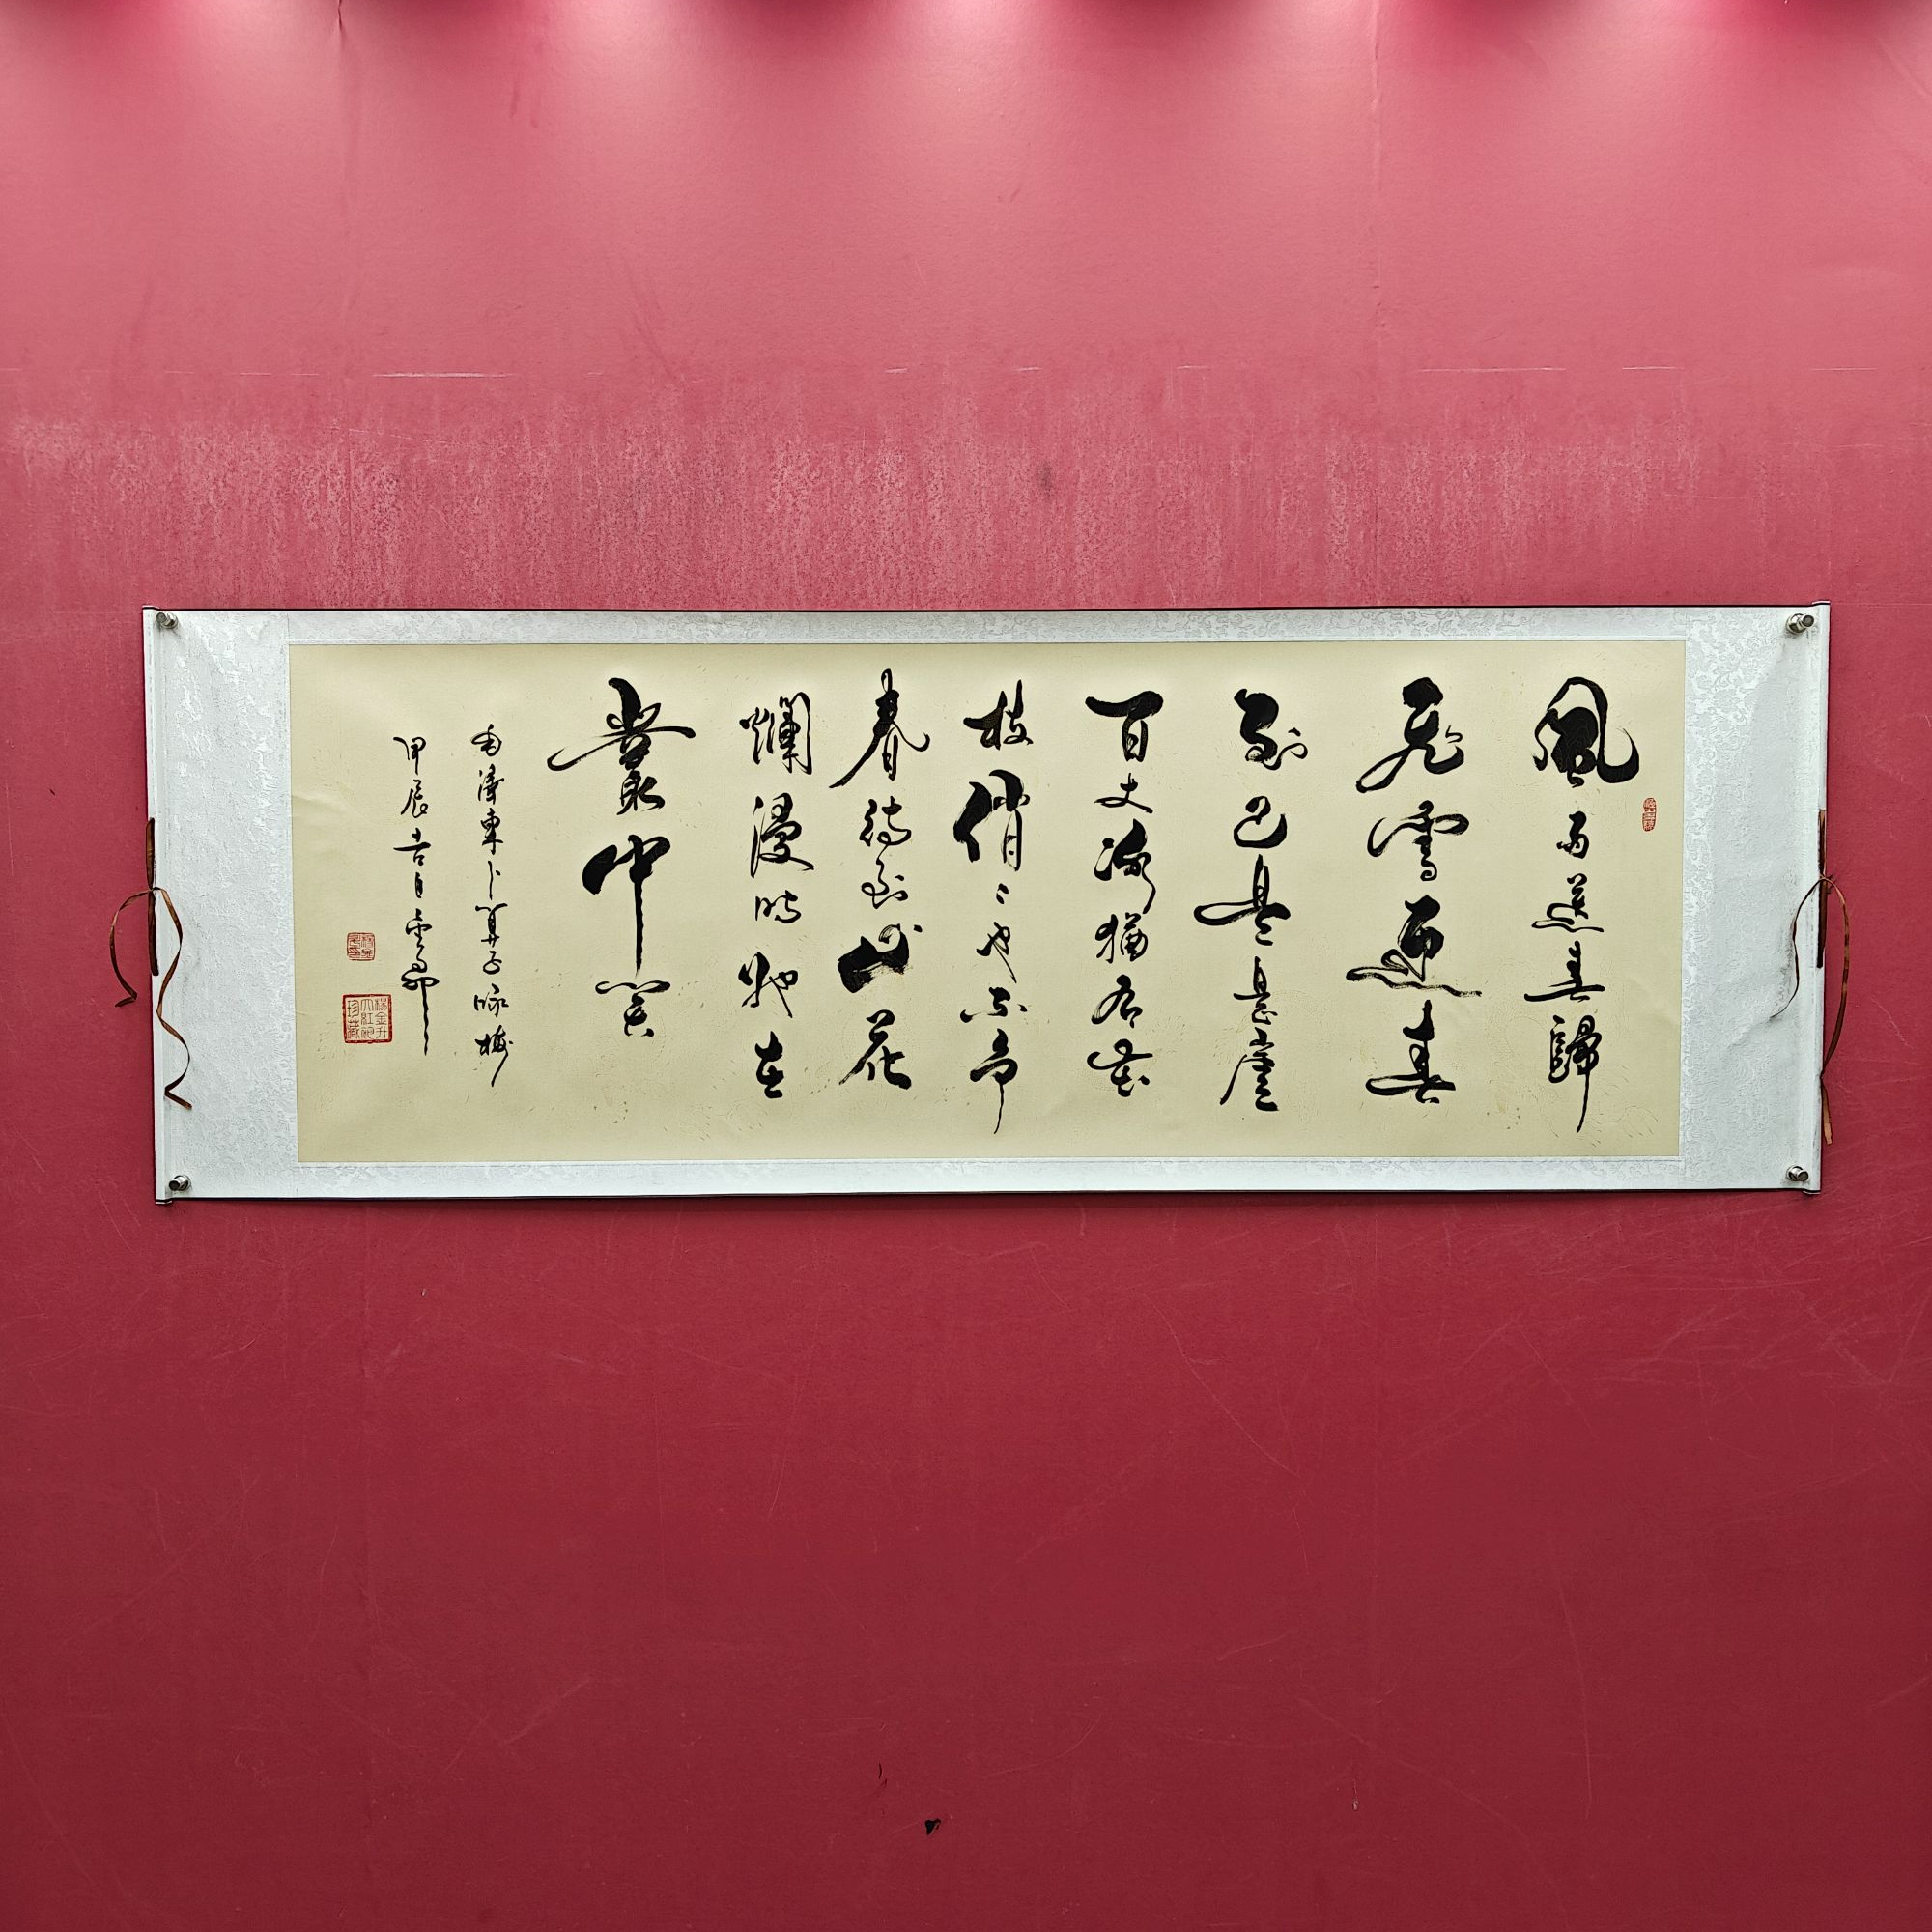 風雨送春歸
飛雪迎春
到已是懸崖
百丈冰猶有花
枝俏〻也不爭
春待到山花
爛漫時她在
叢中笑
毛澤東卜算子咏梅
甲辰吉日